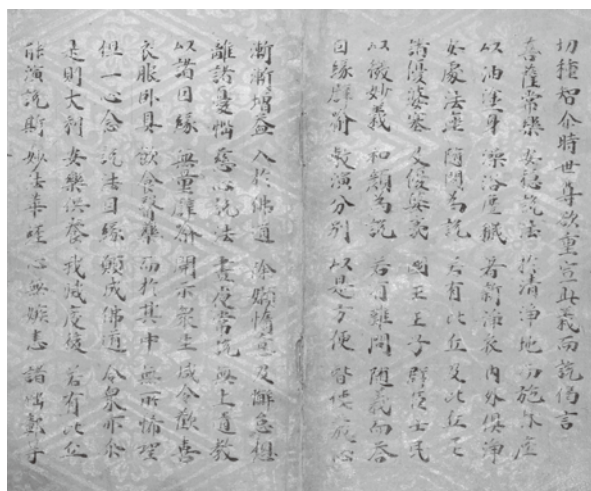 切種智尒時世尊欲重宣此義而說偈言
菩薩常樂 安穩說法 於清淨地 而施床座
以油塗身 澡浴塵穢 著新淨衣 內外俱淨
安處法座 隨問為說 若有比丘 及比丘尼
諸優婆塞 及優婆夷 國王王子 群臣士民
以微妙義 和顏為說 若有難問 隨義而答
因緣譬喻 敷演分別 以是方便 皆使發心
漸漸增益 入於佛道 除嬾惰意 及懈怠想
離諸憂惱 慈心說法 晝夜常說 無上道教
以諸因緣 無量譬喻 開示眾生 咸令歡喜
衣服臥具 飲食醫藥 而於其中 無所悕望
但一心念 說法因緣 願成佛道 令眾亦尒
是則大利 安樂供養 我滅度後 若有比丘
能演說斯 妙法華經 心無嫉恚 諸惱障㝵